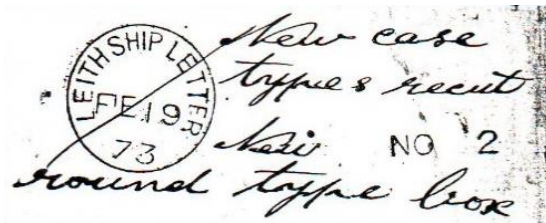 LEITH SHIP LETTER
FE 19
73
New case
types recut
New NO 2
round type box